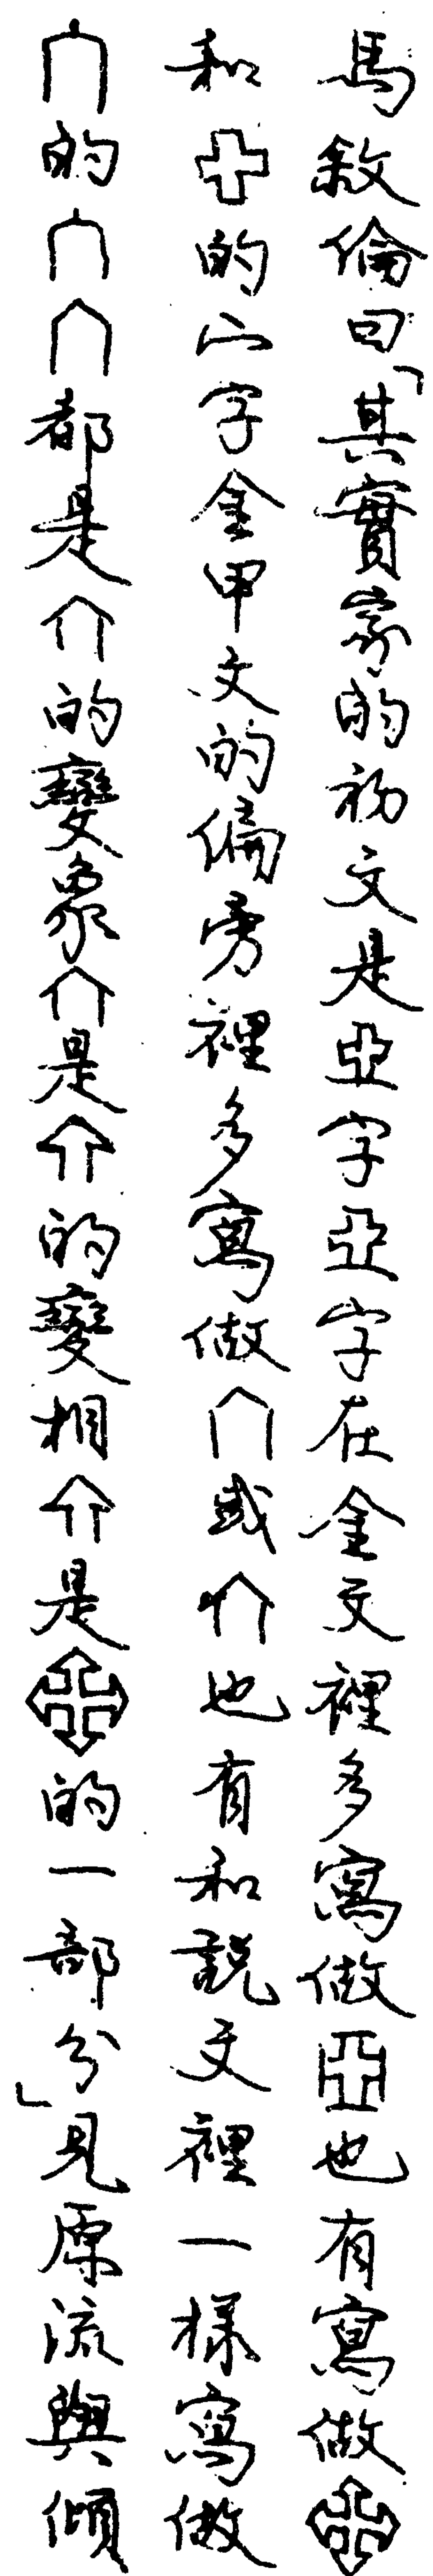 馬敘倫曰「其實家的初文是亞字亞字在金文裡多寫做亞也有寫做
和的宀字金甲文的偏旁裡多寫做或也有和說文裡一樣寫做
的都是的變象是的變相是的一部分」見原流與傾